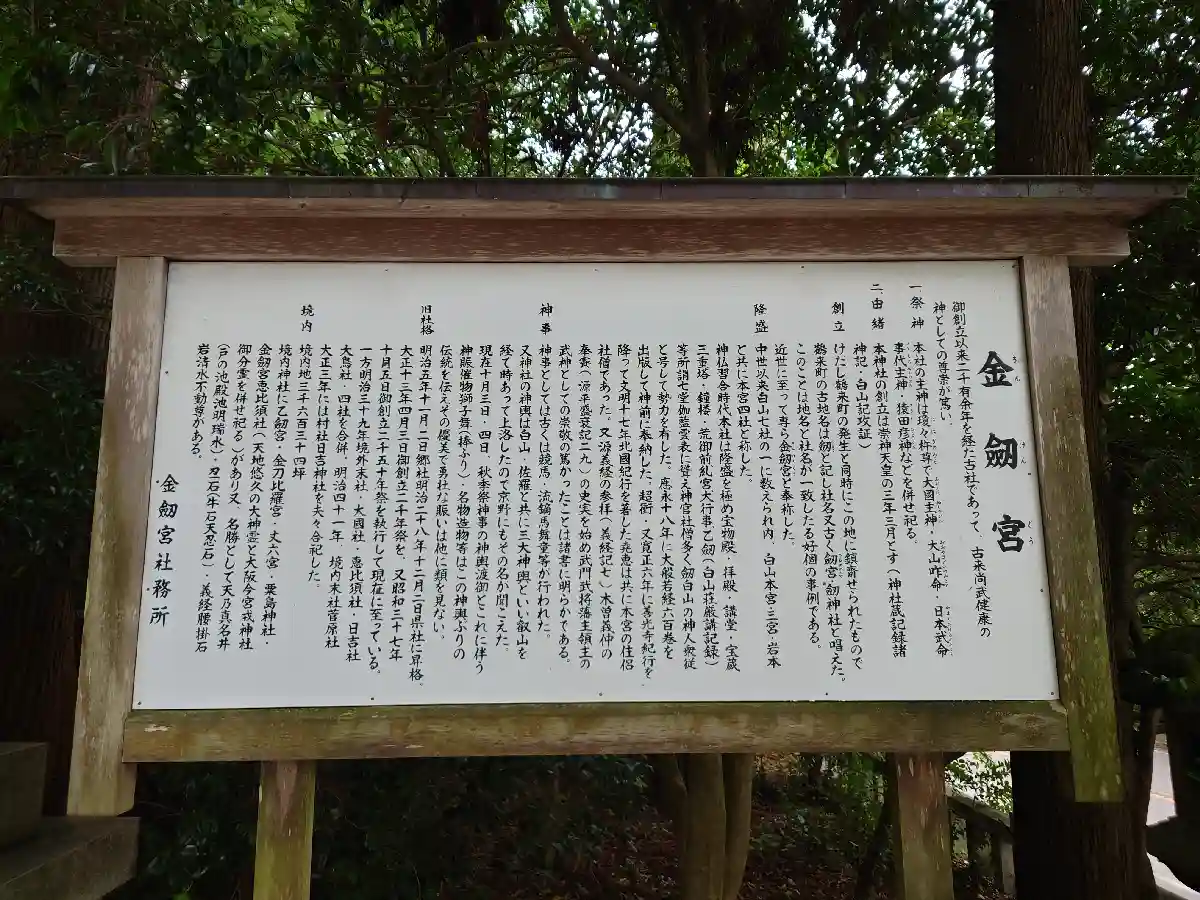 金劔宮
御創立以来二千有余年を経た古社であって、古来尚武健康の
神としての尊崇が篤い。
一、祭神 本社の主神は瓊々杵尊で大國主神・大山咋命・日本武命
事代主神・猿田彦神などを併せ祀る。
二、由緒 本神社の創立は崇神天皇の三年三月とす(神社蔵記録諸
神記・白山記攷証)
創立 けだし鶴来町の発生と同時にこの地に鎮斎せられたもので
鶴来町の古地名は劔と記し社名又古く劔宮・劔神社と唱えた。
このことは地名と社名が一致した好個の事例である。
近世に至って専ら金劔宮と奉称した。
隆盛 中世以来白山七社の一に数えられ内、白山本宮・三宮・岩本
と共に本宮四社と称した。
神仏習合時代本社は隆盛を極め宝物殿、拝殿・講堂・宝蔵
三重塔・鐘楼・荒御前糺宮大行事乙劔(白山荘厳講記録)
等所謂七堂伽藍雲表に聳え神官社僧多く劔白山の神人衆徒
と号して勢力を有した。應永十八年に大般若経六百巻を
出版して神前に奉納した。超衛・又寛正六年に善光寺紀行を
降って文明十七年北國紀行を著した堯恵は共に本宮の住侶
社僧であった。又源義経の参拝(義経記七)木曽義仲の
奉賽(源平盛衰記二九)の史実を始め武門武将藩主領主の
武神としての崇敬の篤かったことは諸書に明らかである。
神事 神事としては古くは競馬・流鏑馬舞童等が行われた。
又神社の神輿は白山、佐羅と共に三大神輿といい叡山を
経て時あって上洛したので京野にもその名が聞こえた。
現在十月三日・四日、秋季祭神事の神輿渡御とこれに伴う
神賑催物獅子舞(棒ふり)名物造物等はこの神輿ぶりの
伝統を伝えその優美で勇壮な賑いは他に類を見ない。
旧社格 明治五年十一月二日郷社明治二十八年十二月二日県社に昇格。
大正十三年四月三日御創立二千年祭を、又昭和三十七年
十月五日御創立二千五十年祭を執行して現在に至っている。
一方明治三十九年境外末社・大國社・恵比須社・日吉社
大鳥社、四社を合併、明治四十一年、境内末社菅原社
大正三年には村社日吉神社を夫々合祀した。
境内 境内地三千六百三十四坪
境内神社に乙劔宮・金刀比羅宮・丈六宮・粟島神社・
金劔宮恵比須社(天地悠久の大神霊と大阪今宮戎神社
御分霊を併せ祀る)があり又、名勝として天乃真名井
(戸の池殿池明瑞水)・忍石(牛石天忍石)・義経腰掛石
岩清水不動尊がある。
金劔宮社務所